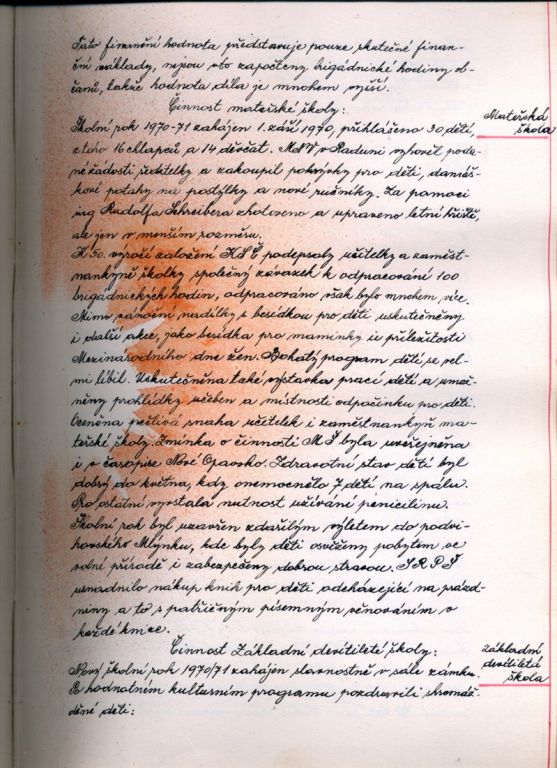 Tato finanční hodnota představuje pouze skutečné finan-
ční náklady, nejsou v to započteny brigádnické hodiny ob-
čanů, takže hodnota díla je mnohem vyšší.
Činnost mateřské školy:
Mateřská
škola
Školní rok 1970-71 zahájen 1. září 1970, přihlášeno 30 dětí,
z toho 16 chlapců a 14 děvčat. MNV v Raduni vyhověl poda-
né žádosti ředitelky a zakoupil pokrývky pro děti, damaš-
kové potahy na postýlky a nové ručníky. Za pomoci
ing Rudolfa Schreibera zhotoveno a upraveno letní hřiště,
ale jen v menším rozměru.
K 50. výročí založení KSČ podepsaly učitelky a zaměst-
nankyně školky společný závazek k odpracování 100
brigádnických hodin, odpracováno však bylo mnohem více.
Mimo vánoční nadílky s besídkou pro děti uskutečněny
i další akce, jako besídka pro maminky u příležitosti
Mezinárodního dne žen. Bohatý program dětí se vel-
mi líbil. Uskutečněna také výstavka prací dětí a umož-
něny prohlídky učeben a místnosti odpočinku pro děti.
Oceněna pečlivá snaha učitelek i zaměstnankyň ma-
teřské školy. Zmínka o činnosti MŠ byla uveřejněna
i v časopise Nové Opavsko. Zdravotní stav dětí byl
dobrý do května, kdy onemocnělo 7 dětí na spálu.
Pro ostatní vyvstala nutnost užívání penicilinu.
Školní rok byl uzavřen zdařilým výletem do podvi-
hovského Mlýnku, kde byly děti osvěženy pobytem ve
volné přírodě i zabezpečeny dobrou stravou. SRPŠ
usnadnilo nákup knih pro děti odcházející na prázd-
niny a to s patřičným písemným věnováním v
každé knize.
Činnost Základní devítileté školy:
základní
devítiletá
škola
Nový školní rok 1970/71 zahájen slavnostně v sále zámku.
Po hodnotném kulturním programu pozdravili shromáž-
děné děti: